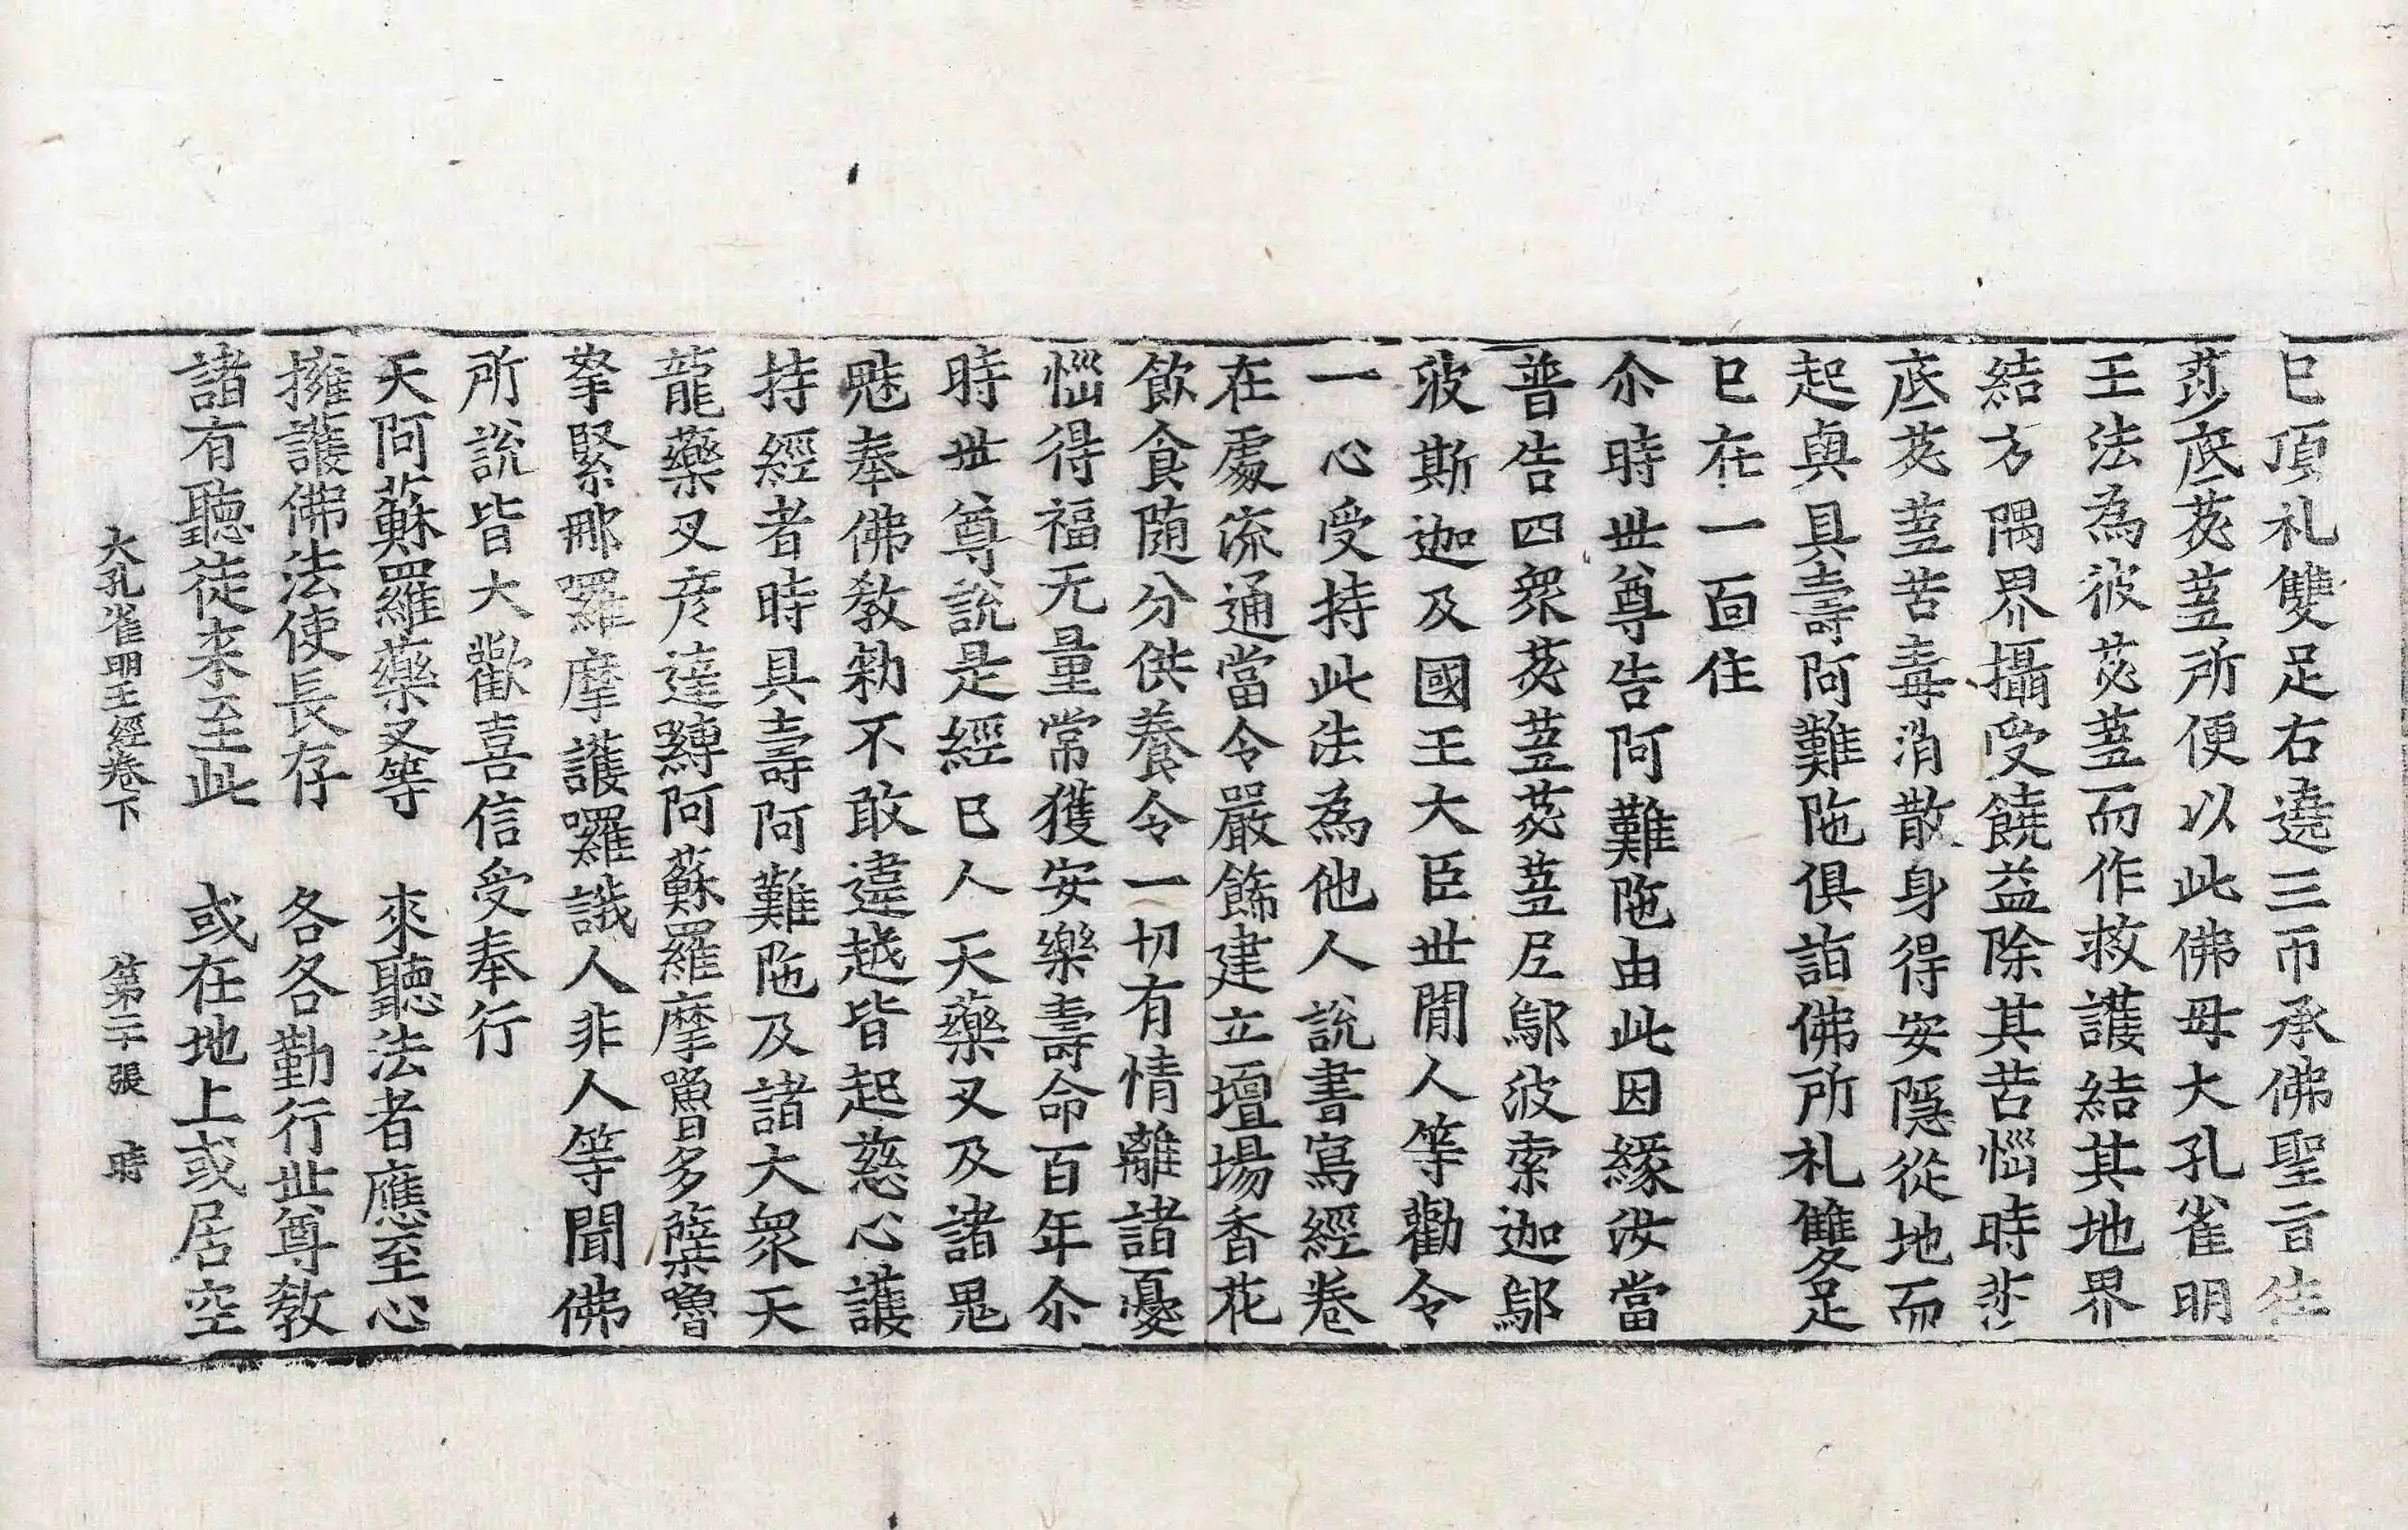 已頂礼雙足右遶三帀承佛聖旨往
莎底苾蒭所便以此佛母大孔雀明
王法為彼苾蒭而作救護結其地界
結方隅界攝受饒益除其苦惱時莎
底苾蒭苦毒消散身得安隱從地而
起與具壽阿難陁俱詣佛所礼雙足
已在一面住
尒時世尊告阿難陁由此因緣汝當
普告四眾苾蒭苾蒭尼鄔波索迦鄔
波斯迦及國王大臣世間人等勸令
一心受持此法為他人說書寫經卷
在處流通當令嚴飾建立壇場香花
飲食随分供養令一切有情離諸憂
惱得福无量常獲安樂壽命百年尒
時世尊說是經已人天藥叉及諸鬼
魅奉佛教勑不敢違越皆起慈心護
持經者時具壽阿難陁及諸大眾天
龍藥叉彦達嚩阿蘇羅摩嚕多蘖嚕
拏緊那囉摩護囉誐人非人等聞佛
所說皆大歡喜信受奉行
天阿蘇羅藥叉等　來聽法者應至心
擁護佛法使長存　各各勤行世尊教
諸有聽徒来至此　或在地上或居空
大孔雀明王經卷下　第二十張　時